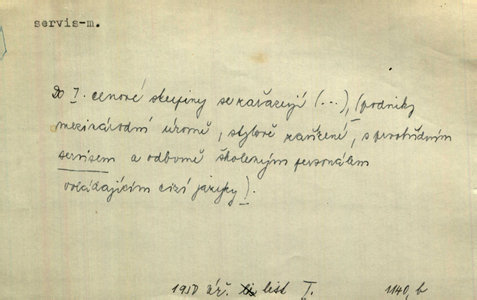 servis-m.
Do I. cenové skupiny se zařazují (...), (podniky
mezinárodní úrovně, stylově zařízené, s prvotřídním
servisem a odborně školeným personálem
ovládajícím cizí jazyky).
1950 Úř. list I. 1140, b